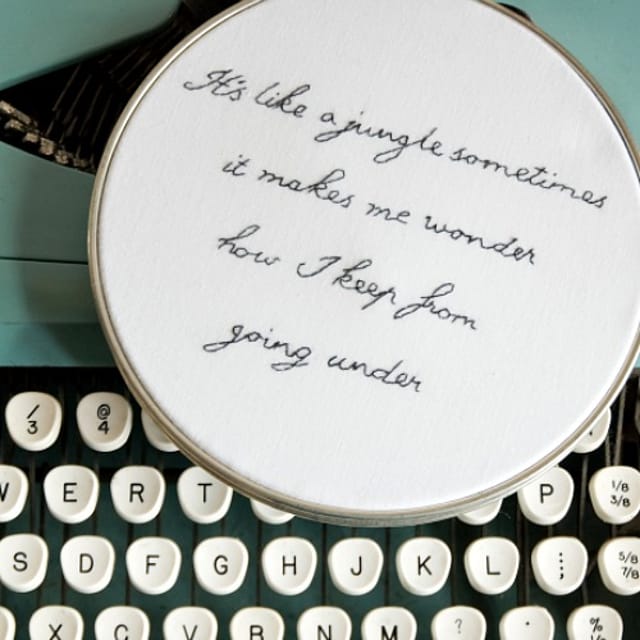 It's like a jungle sometimes
it makes me wonder
how I keep from
going under
/ @
3 4
W E R T P 1/8
3/8
S D F G H J K L ; 5/8
: 7/8
X C V B N M ? . %